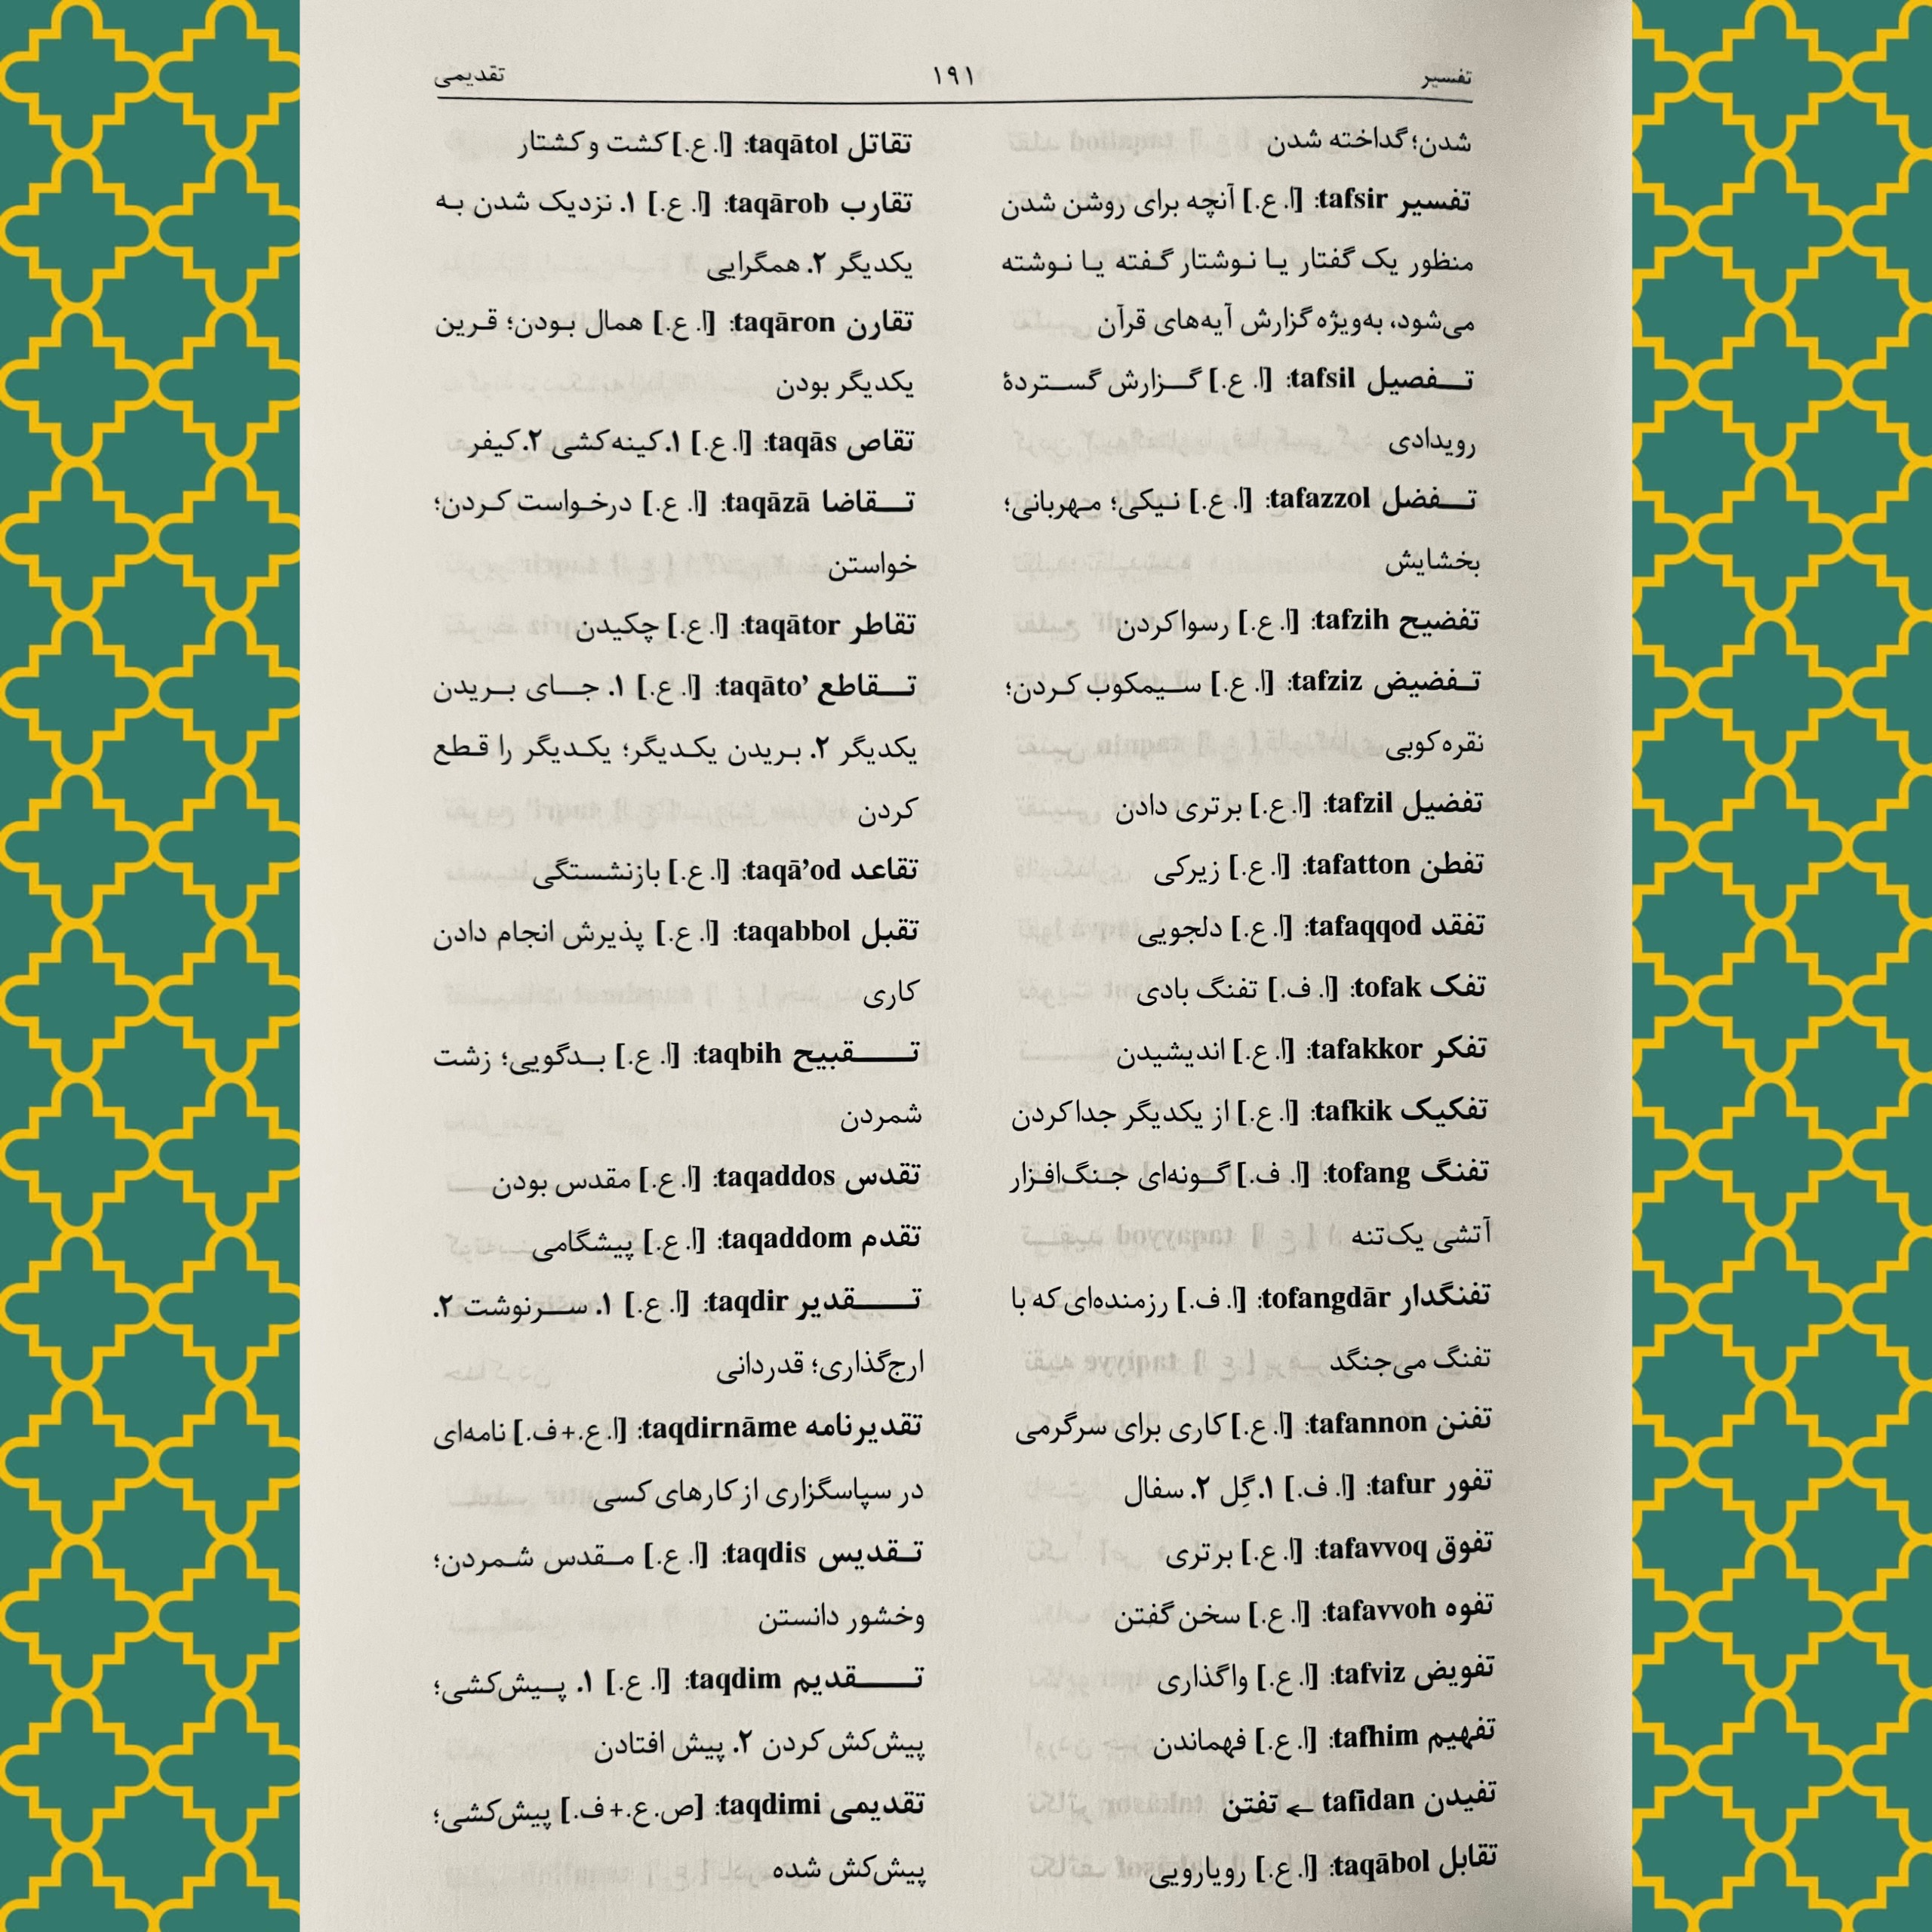 تفسیر ۱۹۱ تقدیمی
شدن؛ گداخته شدن
تفسیر tafsir: [ا. ع.] آنچه برای روشن شدن
منظور یک گفتار یا نوشتار گفته یا نوشته
می‌شود، به‌ویژه گزارش آیه‌های قرآن
تفصیل tafsil: [ا. ع.] گزارش گستردۀ
رویدادی
تفضل tafazzol: [ا. ع.] نیکی؛ مهربانی؛
بخشایش
تفضیح tafzih: [ا. ع.] رسوا کردن
تفضیض tafziz: [ا. ع.] سیمکوب کردن؛
نقره‌کوبی
تفضیل tafzil: [ا. ع.] برتری دادن
تفطن tafatton: [ا. ع.] زیرکی
تفقد tafaqqod: [ا. ع.] دلجویی
تفک tofak: [ا. ف.] تفنگ بادی
تفکر tafakkor: [ا. ع.] اندیشیدن
تفکیک tafkik: [ا. ع.] از یکدیگر جدا کردن
تفنگ tofang: [ا. ف.] گونه‌ای جنگ‌افزار
آتشی یک‌تنه
تفنگدار tofangdār: [ا. ف.] رزمنده‌ای که با
تفنگ می‌جنگد
تفنن tafannon: [ا. ع.] کاری برای سرگرمی
تفور tafur: [ا. ف.] ۱. گِل ۲. سفال
تفوق tafavvoq: [ا. ع.] برتری
تفوه tafavvoh: [ا. ع.] سخن گفتن
تفویض tafviz: [ا. ع.] واگذاری
تفهیم tafhim: [ا. ع.] فهماندن
تفیدن tafidan ← تفتن
تقابل taqābol: [ا. ع.] رویارویی
تقاتل taqātol: [ا. ع.] کشت و کشتار
تقارب taqārob: [ا. ع.] ۱. نزدیک شدن به
یکدیگر ۲. همگرایی
تقارن taqāron: [ا. ع.] همال بودن؛ قرین
یکدیگر بودن
تقاص taqās: [ا. ع.] ۱. کینه‌کشی ۲. کیفر
تقاضا taqāzā: [ا. ع.] درخواست کردن؛
خواستن
تقاطر taqātor: [ا. ع.] چکیدن
تقاطع taqāto’: [ا. ع.] ۱. جای بریدن
یکدیگر ۲. بریدن یکدیگر؛ یکدیگر را قطع
کردن
تقاعد taqā’od: [ا. ع.] بازنشستگی
تقبل taqabbol: [ا. ع.] پذیرش انجام دادن
کاری
تقبیح taqbih: [ا. ع.] بدگویی؛ زشت
شمردن
تقدس taqaddos: [ا. ع.] مقدس بودن
تقدم taqaddom: [ا. ع.] پیشگامی
تقدیر taqdir: [ا. ع.] ۱. سرنوشت ۲.
ارج‌گذاری؛ قدردانی
تقدیرنامه taqdirnāme: [ا. ع.+ ف.] نامه‌ای
در سپاسگزاری از کارهای کسی
تقدیس taqdis: [ا. ع.] مقدس شمردن؛
وخشور دانستن
تقدیم taqdim: [ا. ع.] ۱. پیش‌کشی؛
پیش‌کش کردن ۲. پیش افتادن
تقدیمی taqdimi: [ص. ع.+ ف.] پیش‌کشی؛
پیش‌کش شده